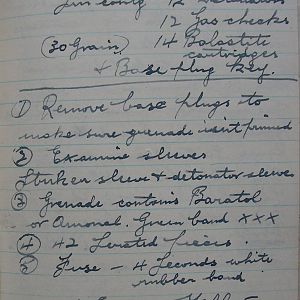 12 Detonators
12 Gas checks
(30 Grain) 14 Balastite
cartridges
& Base plug key.
① Remove base plugs to
make sure grenade isent primed
② Examine sleeves
Striker sleeve & detonator sleeve
③ Grenade contains Baratol
or Amonal. Green band XXX
④ 42 Serated pieces.
⑤ Fuse - 4 Seconds white
rubber band